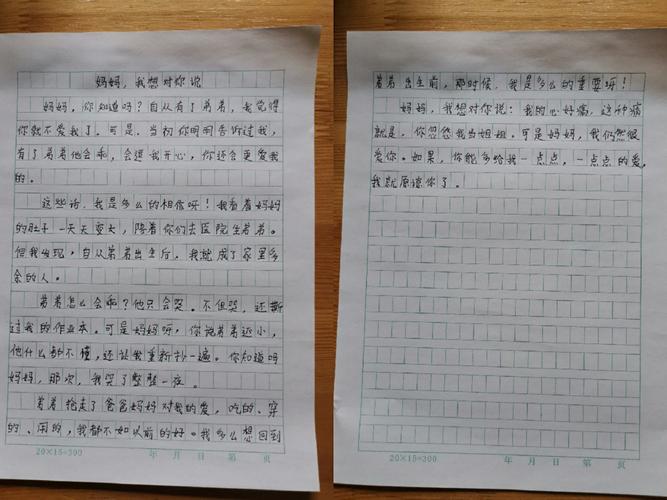 妈妈，我想对你说
妈妈，你知道吗？自从有了弟弟，我觉得
你就不爱我了。可是，当初你明明告诉过我，
有了弟弟他会乖，会逗我开心，你还会更爱我
的。
这些话，我是多么的相信呀！我看着妈妈
的肚子一天天变大，陪着你们去医院生弟弟。
但我发现，自从弟弟出生后，我就成了家里多
余的人。
弟弟怎么会乖？他只会哭。不但哭，还撕
过我的作业本。可是妈妈呀，你说弟弟还小，
他什么都不懂，还让我重新抄一遍。你知道吗
妈妈，那次，我哭了整整一夜。
弟弟抢走了爸爸妈妈对我的爱，吃的、穿
的、用的，我都不如以前的好。我多么想回到
20×15=300 年 月 日 第 页
弟弟出生前，那时候，我是多么的重要呀！
妈妈，我想对你说：我的心好痛，这种痛
就是，你忽然我当姐姐。可是妈妈，我仍然很
爱你。如果，你能多给我一点点，一点点的爱，
我就原谅你了。
20×15=300 年 月 日 第 页